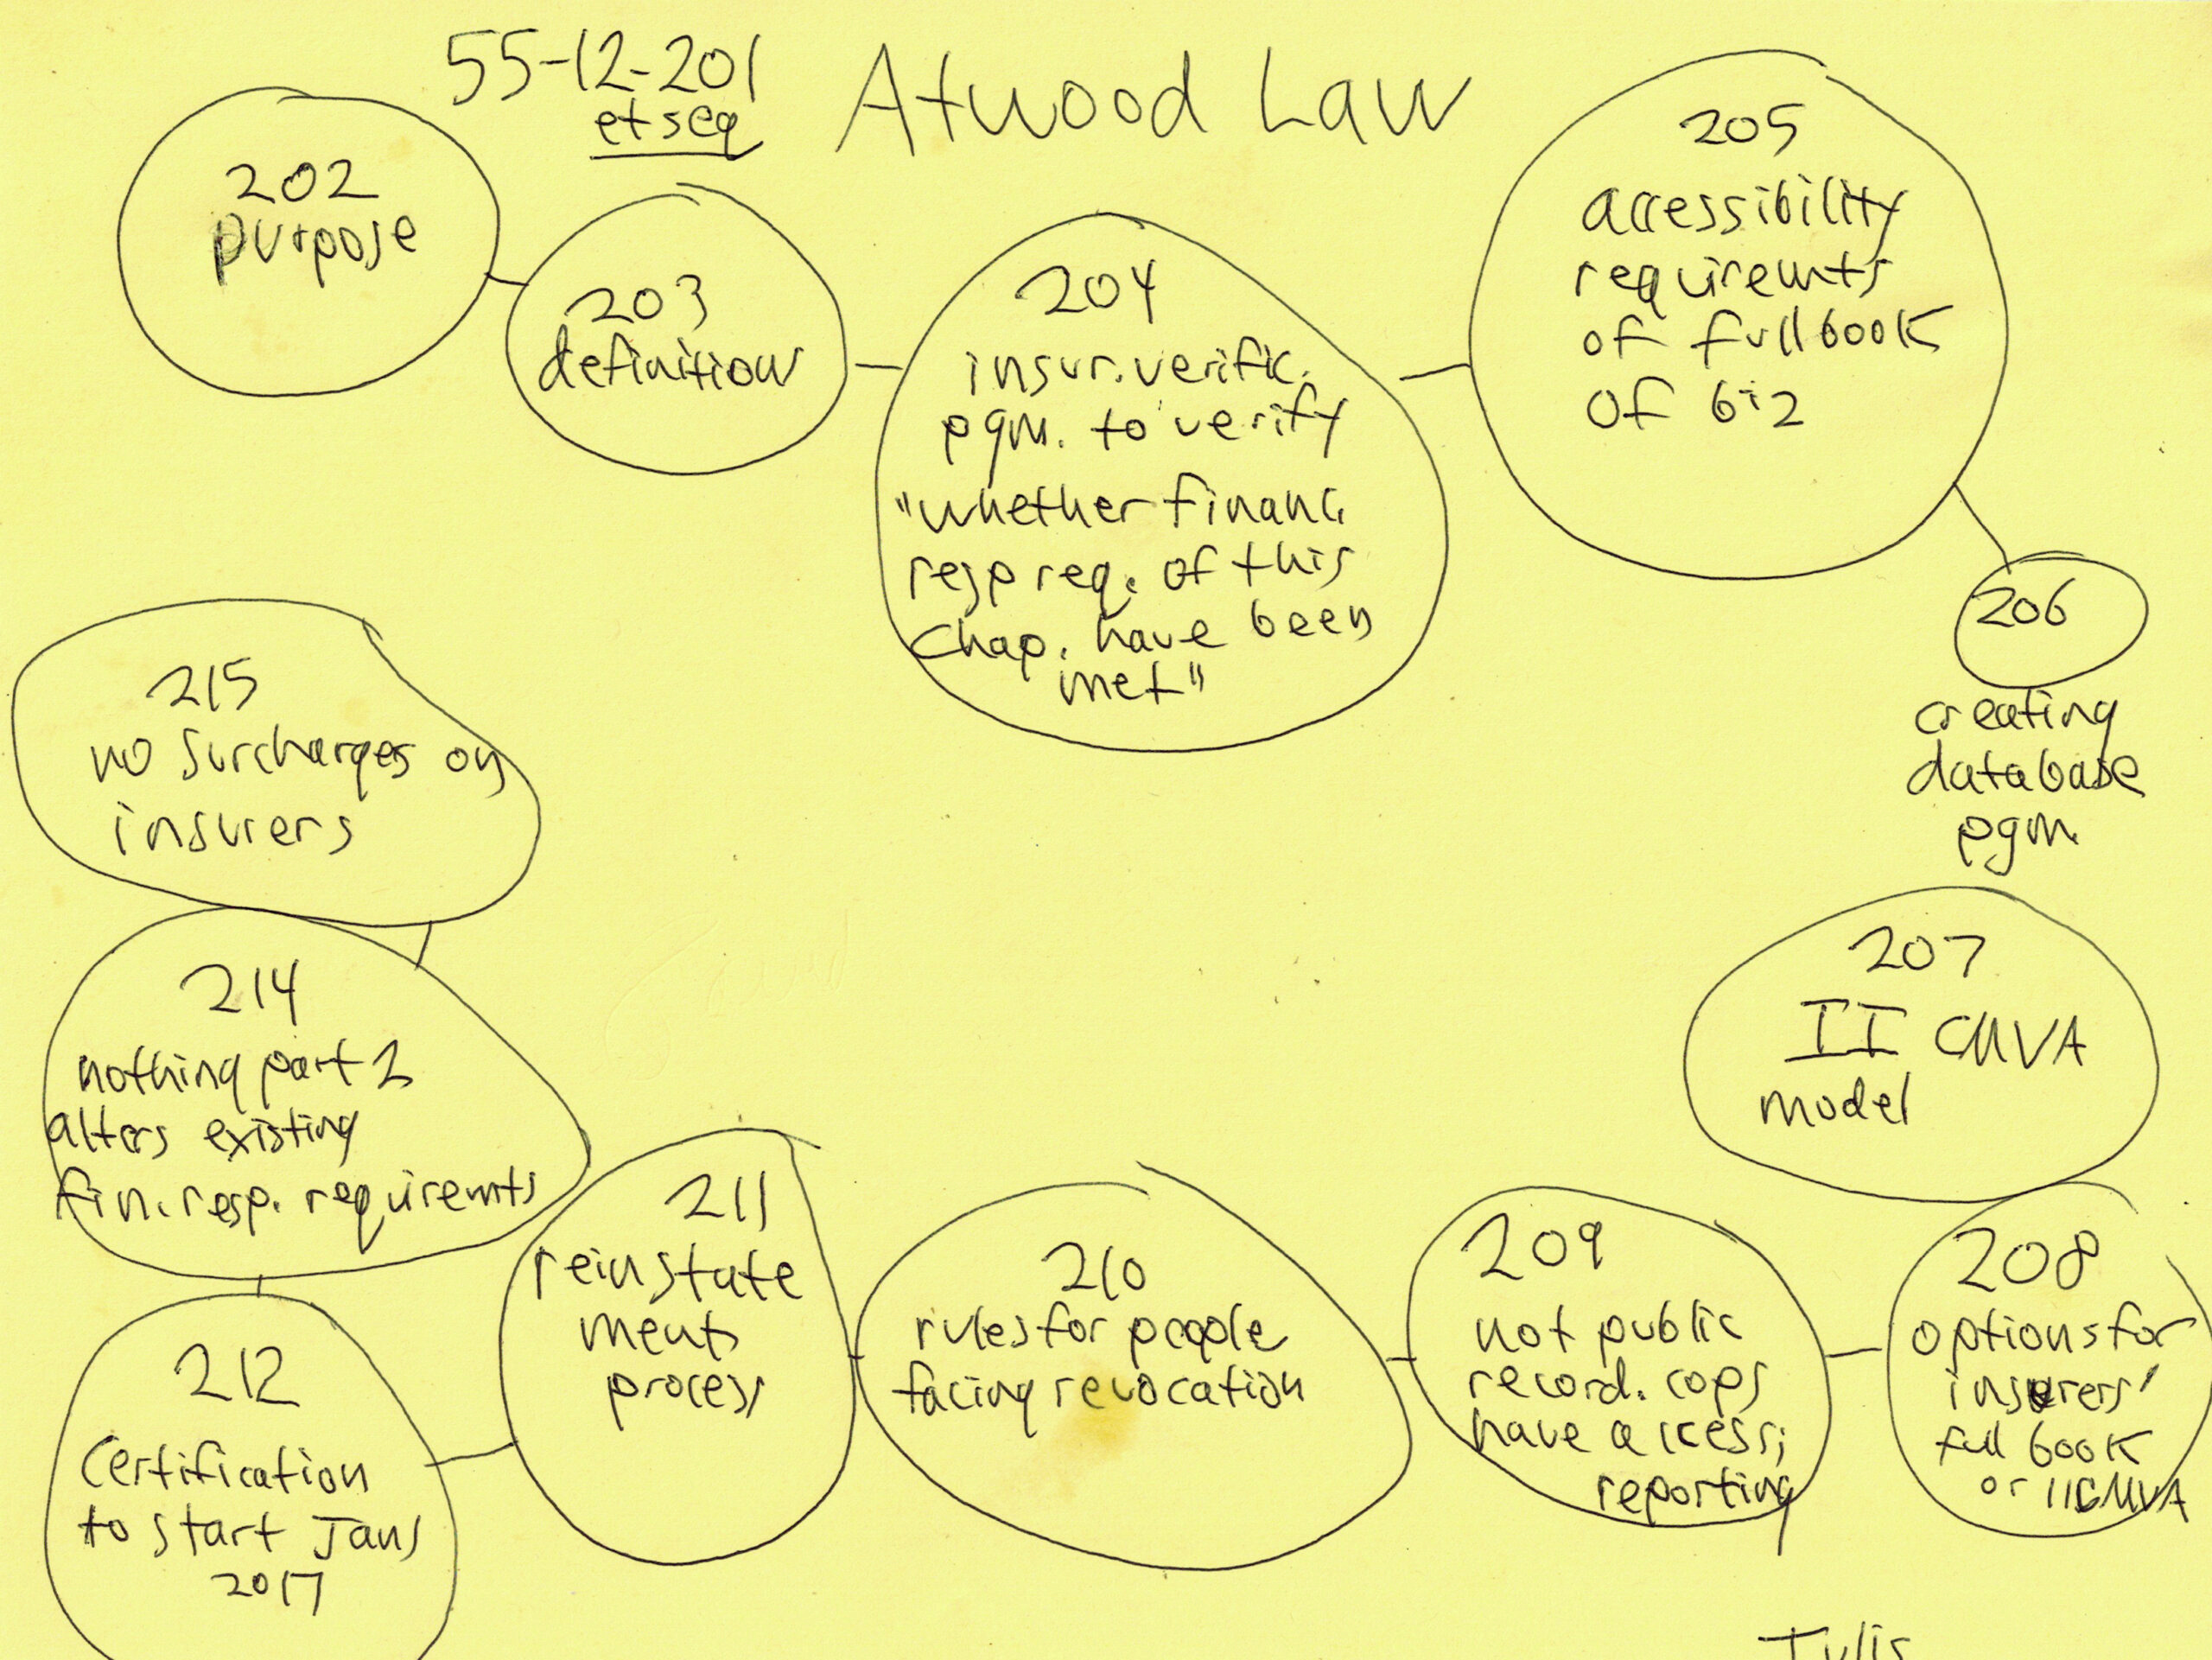 55-12-201
et seq
Atwood Law
202
purpose
203
definitions
204
insur. verific.
pgm. to verify
"whether financ.
resp req. of this
chap. have been
met"
205
accessibility
requiremts
of full book
of biz
206
creating
database
pgm.
207
II CMVA
model
208
options for
insurers'
full book
or IICMVA
209
not public
record. cops
have access;
reporting
210
rules for people
facing revocation
211
reinstate
ments
process
212
Certification
to start Jan 1
2017
214
nothing part 2
alters existing
fin. resp. requiremts
215
no surcharges on
insurers
Tulis